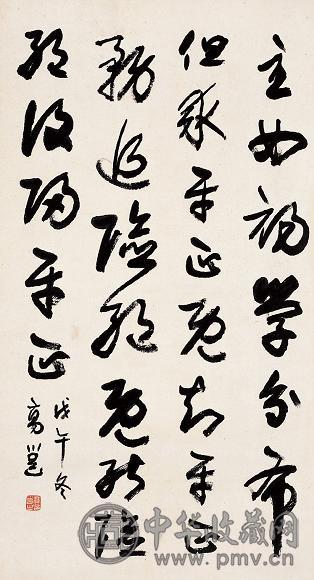 至如初學分布
但求平正既知平正
務追險絕既能險
絕復歸平正
戊午冬
高邕
中华收藏网
www.pmv.cn